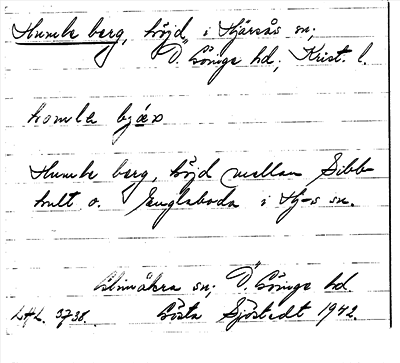 Humle berg, höjd i Hjärsås sn;
Ö. Göinge hd; Krist. l.
homla bjäx
Humle berg, höjd mellan Sibb-
hult o. Englaboda i Hj-s sn.
Glimåkra sn; Ö. Göinge hd.
LAL. 3738. Gösta Sjöstedt 1942.